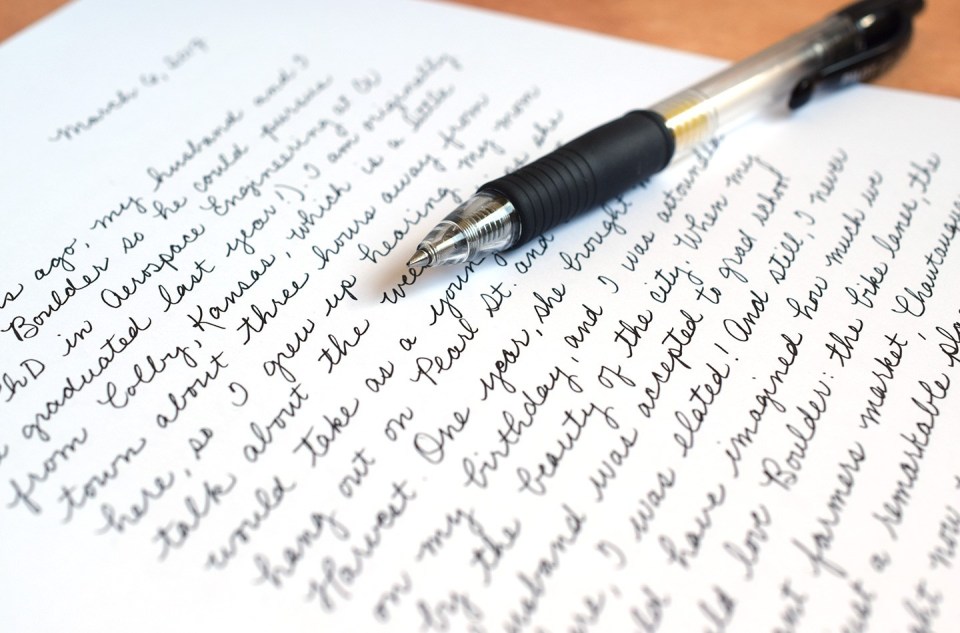 March 6, 2017
s ago, my husband and I
Boulder so he could pursue
PhD in Aerospace Engineering at C
graduated last year!). I am originally
from Colby, Kansas, which is a little
town about three hours away from
here, so I grew up hearing my mom
talk about the she
would take as a young
hang out on Pearl St. and
Harvest. One year, she brought
on my birthday, and I was
by the beauty of the city. When my
usband was accepted to grad school
re, I was elated! And still, I never
ld have imagined how much we
ld love Boulder: the bike lanes, the
farmers market, Chautauqu
a remarkable pla
now